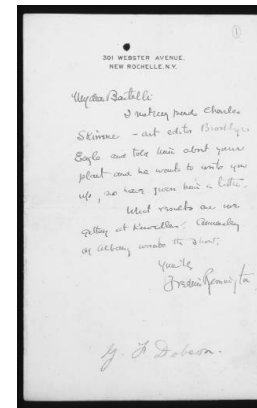 1
301 WEBSTER AVENUE,
NEW ROCHELLE, N.Y.
My dear Bartelli
I met my friend Charles
Skinner - art editor Brooklyn
Eagle and told him about your
plant and he wants to write you
up, so have given him a letter.
What results are we
getting at Knoedlers? Annesley
of Albany wants to show.
Yours
Frederic Remington